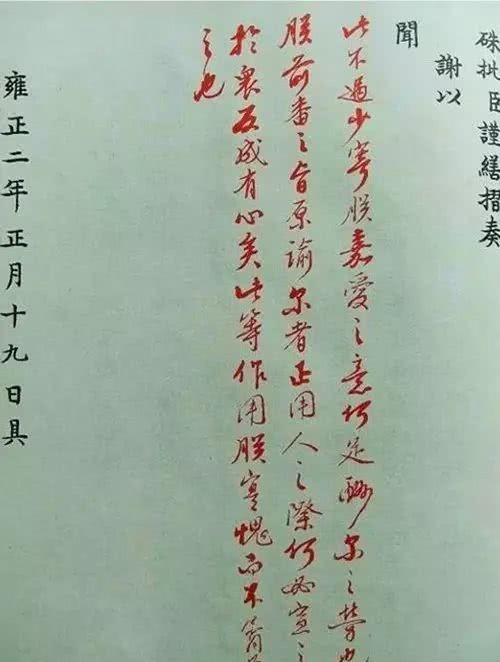 硃批臣謹繕摺奏
謝以
聞
此不過少寄朕嘉愛之意何足酬尔之勞也
朕前番之旨原諭尔者正用人之際何必宣之
於衆反成有心矣此等作用朕寔愧而不肯
之也
雍正二年正月十九日具